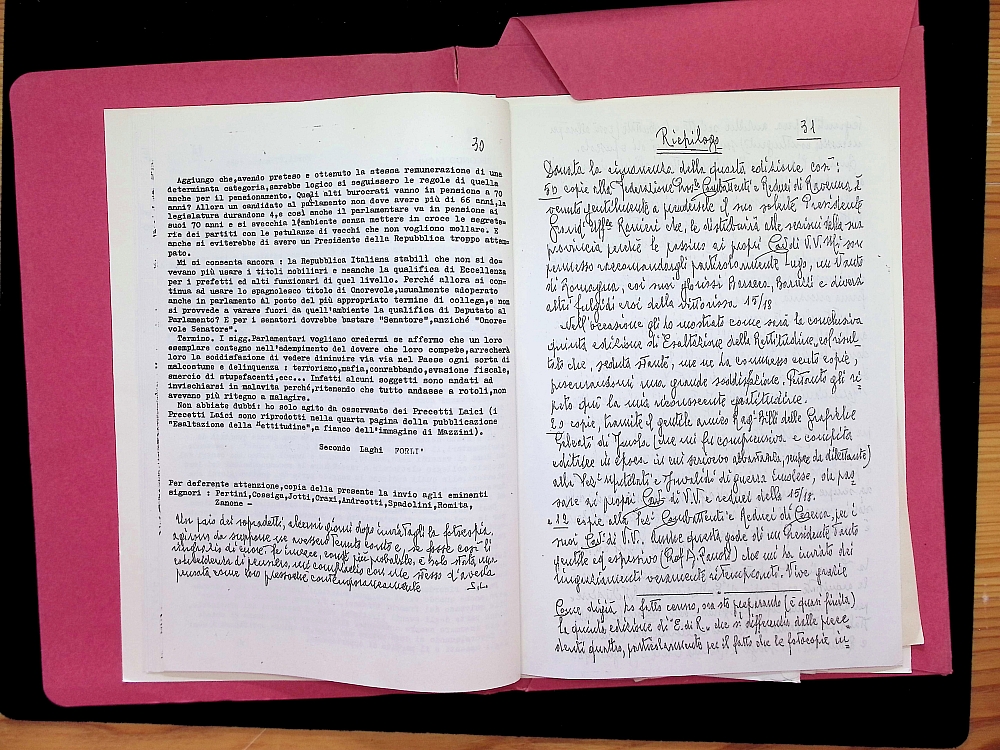 30
Aggiungo che,avendo preteso e ottenuto la stessa remunerazione di una
determinata categoria,sarebbe logico si seguissero le regole di quella
anche per il pensionamento. Quali alti burocrati vanno in pensione a 70
anni? Allora un candidato al parlamento non deve avere più di 66 anni,la
legislatura durandone 4,e così anche il parlamentare va in pensione ai
suoi 70 anni e si svecchia l'ambiente senza mettere in croce le segrete-
rie dei partiti con le petulanze di vecchi che non vogliono mollare. E
anche si eviterebbe di avere un Presidente della Repubblica troppo attem-
pato.
Mi si consenta ancora : la Repubblica Italiana stabilì che non si do-
vevano più usare i titoli nobiliari e neanche la qualifica di Eccellenza
per i prefetti ed alti funzionari di quel livello. Perché allora si con-
tinua ad usare lo spagnolesco titolo di Onorevole,umualmente adoperato
anche in parlamento al posto del più appropriato termine di collega,e non
si provvede a varare fuori da quell'ambiente la qualifica di Deputato al
Parlamento? E per i senatori dovrebbe bastare "Senatore",anziché "Onore-
vole Senatore".
Termino. I sigg.Parlamentari vogliano credermi se affermo che un loro
esemplare contegno nell'adempimento del dovere che loro compete,arrecherà
loro la soddisfazione di vedere diminuire via via nel Paese ogni sorta di
malcostume e delinquenza : terrorismo,mafia,contrabbando,evasione fiscale,
smercio di stupefacenti,ecc... Infatti alcuni soggetti sono andati ad
invischiarsi in malavita perché,ritenendo che tutto andasse a rotoli,non
avevano più ritegno a malagire.
Non abbiate dubbi: ho solo agito da osservante dei Precetti Laici (i
Precetti Laici sono riprodotti nella quarta pagina della pubblicazione
"Esaltazione della "ettitudine",a fianco dell'immagine di Mazzini).
Secondo Laghi FORLI'
Per deferente attenzione,copia della presente la invio agli eminenti
signori : Pertini,Cossiga,Jotti,Craxi,Andreotti,Spadolini,Romita,
Zanone -
Un paio dei sopradetti, alcuni giorni dopo inviatagli la fotocopia,
agirono da supporre ne avessero tenuto conto e, se fosse così li
ringrazio di cuore. Se invece, com'è più probabile, è solo stata una
coincidenza di pensiero, mi compiaccio con me stesso d'averla
pensata come loro pressoché contemporaneamente
S.L.
31
Riepilogo
Donata la rimanenza della quarta edizione così:
50 copie alla Federazione Prov.le Combattenti e Reduci di Ravenna, è
venuto gentilmente a prenderle il suo solerte Presidente
Grand'Uff.le Ranieri che, le distribuirà alle sezioni della sua
provincia perché le passino ai propri Cav. di V.V. Mi son
permesso raccomandargli particolarmente Lugo, un vanto
di Romagna, coi suoi gloriosi Baracca, Baruzzi e diversi
altri fulgidi eroi della vittoriosa 15/18
Nell'occasione gli ho mostrato come sarà la conclusiva
quinta edizione di Esaltazione della Rettitudine, col risul-
tato che, seduta stante, me ne ha commesso cento copie,
procurandomi una grande soddisfazione. Pertanto gli ri-
peto qui la mia riconoscente gratitudine.
20 copie, tramite il gentile amico Rag. Billi delle Grafiche
Galeati di Imola (che mi fu comprensiva e compita
editrice in epoca in cui scrivevo abbastanza, seppur da dilettante)
alla Sez. Mutilati e Invalidi di guerra Imolese, da pas-
sare ai propri Cav. di V.V. e reduci della 15/18.
e 12 copie alla Sez. Combattenti e Reduci di Cesena, per i
suoi Cav. di V.V. Anche questa gode di un Presidente tanto
gentile ed espressivo (Prof. A. Ramo) che mi ha inviato dei
ringraziamenti veramente riconoscenti. Vive grazie
Come di già ho fatto cenno, ora sto preparando (è quasi finita)
la quinta edizione di "E. di R." che si differenzia dalle prece-
denti quattro, particolarmente per il fatto che le fotocopie in=